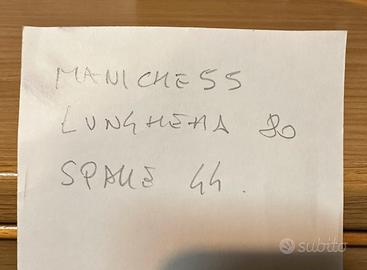 MANICHE 55
LUNGHEZZA 80
SPALLE 44.
subito